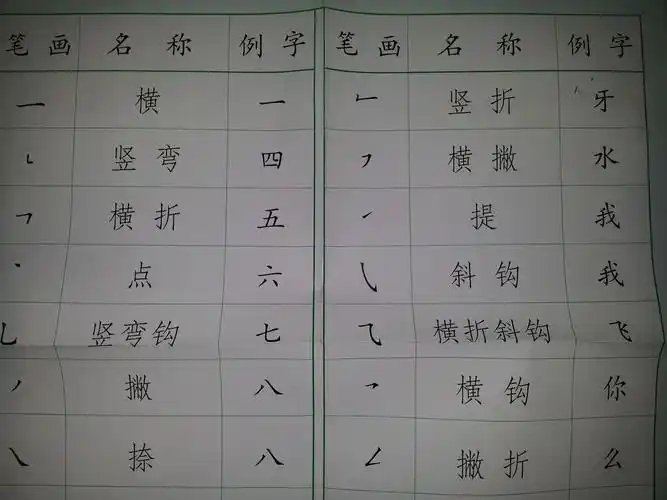 笔画 名称 例字 笔画 名称 例字
一 横 一 𠃊 竖折 牙
㇄ 竖弯 四 ㇇ 横撇 水
𠃍 横折 五 ㇀ 提 我
丶 点 六 ㇂ 斜钩 我
乚 竖弯钩 七 ⺄ 横折斜钩 飞
丿 撇 八 乛 横钩 你
㇏ 捺 八 𠃋 撇折 么